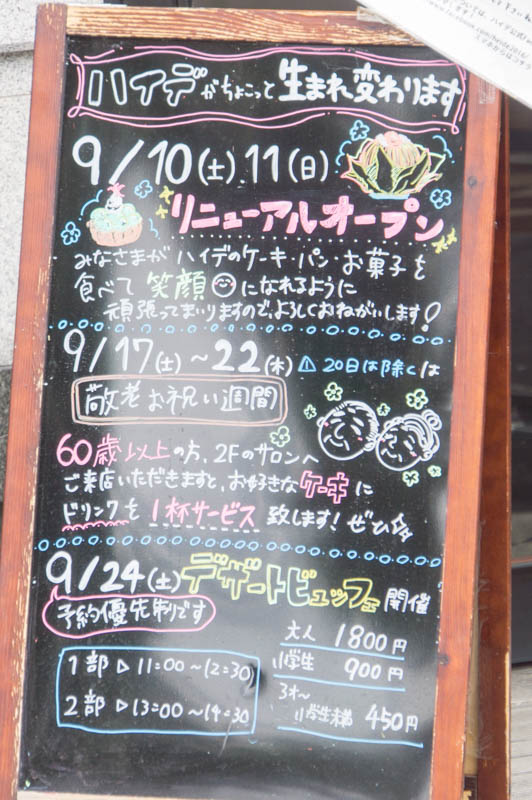 ハイデがちょこっと生まれ変わります
9/10(土)11(日)
リニューアルオープン
みなさまがハイデのケーキ・パン・お菓子を
食べて笑顔になれるように
頑張ってまいりますので、よろしくおねがいします!
9/17(土)~22(木)⚠20日は除くは
敬老お祝い週間
60歳以上の方、2Fのサロンへ
ご来店いただきますと、お好きなケーキに
ドリンクを1杯サービス致します!ぜひ
9/24(土)デザートビュッフェ開催
予約優先制りです
大人 1800円
小学生 900円
3才~
小学生未満 450円
1部▷11:00~12:30
2部▷13:00~14:30